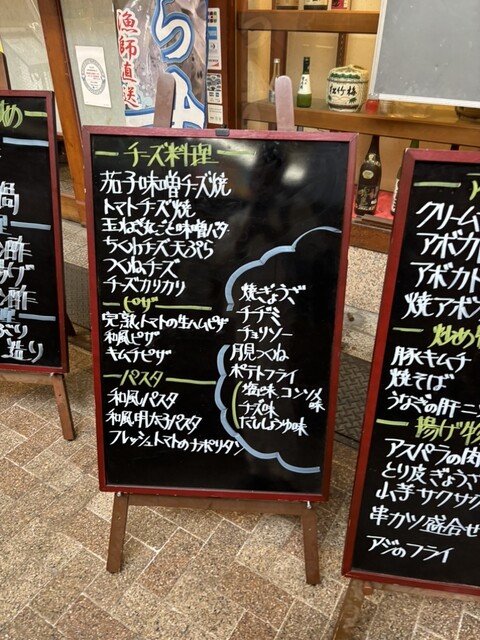 漁師直送
松竹梅
チーズ料理
茄子味噌チーズ焼
トマトチーズ焼
玉ねぎ丸ごと味噌バター
ちくわチーズ天ぷら
つくねチーズ
チーズカリカリ
ピザ
完熟トマトの生ハムピザ
和風ピザ
キムチピザ
パスタ
和風パスタ
和風明太子パスタ
フレッシュトマトのナポリタン
焼ぎょうざ
チヂミ
チョリソー
月見つくね
ポテトフライ
塩味 コンソメ味
チーズ味
だししょうゆ味
クリーム
アボカ
アボカド
焼アボ
炒め物
豚キムチ
焼そば
うなぎの肝ニ
揚げ物
アスパラの肉
とり皮ぎょうざ
山芋サクサク
串カツ盛合せ
アジのフライ